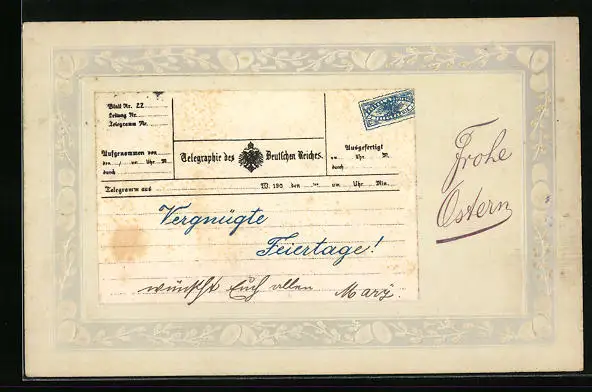 Blatt Nr. 22
Leitung Nr.
Telegramm Nr.
Aufgenommen von
den / um Uhr M.
durch
Telegraphie des Deutschen Reiches.
Ausgefertigt
um Uhr M.
durch
Telegramm aus W. 190 den um Uhr Min.
Vergnügte
Feiertage!
wünscht Euch allen Mary.
Frohe
Ostern